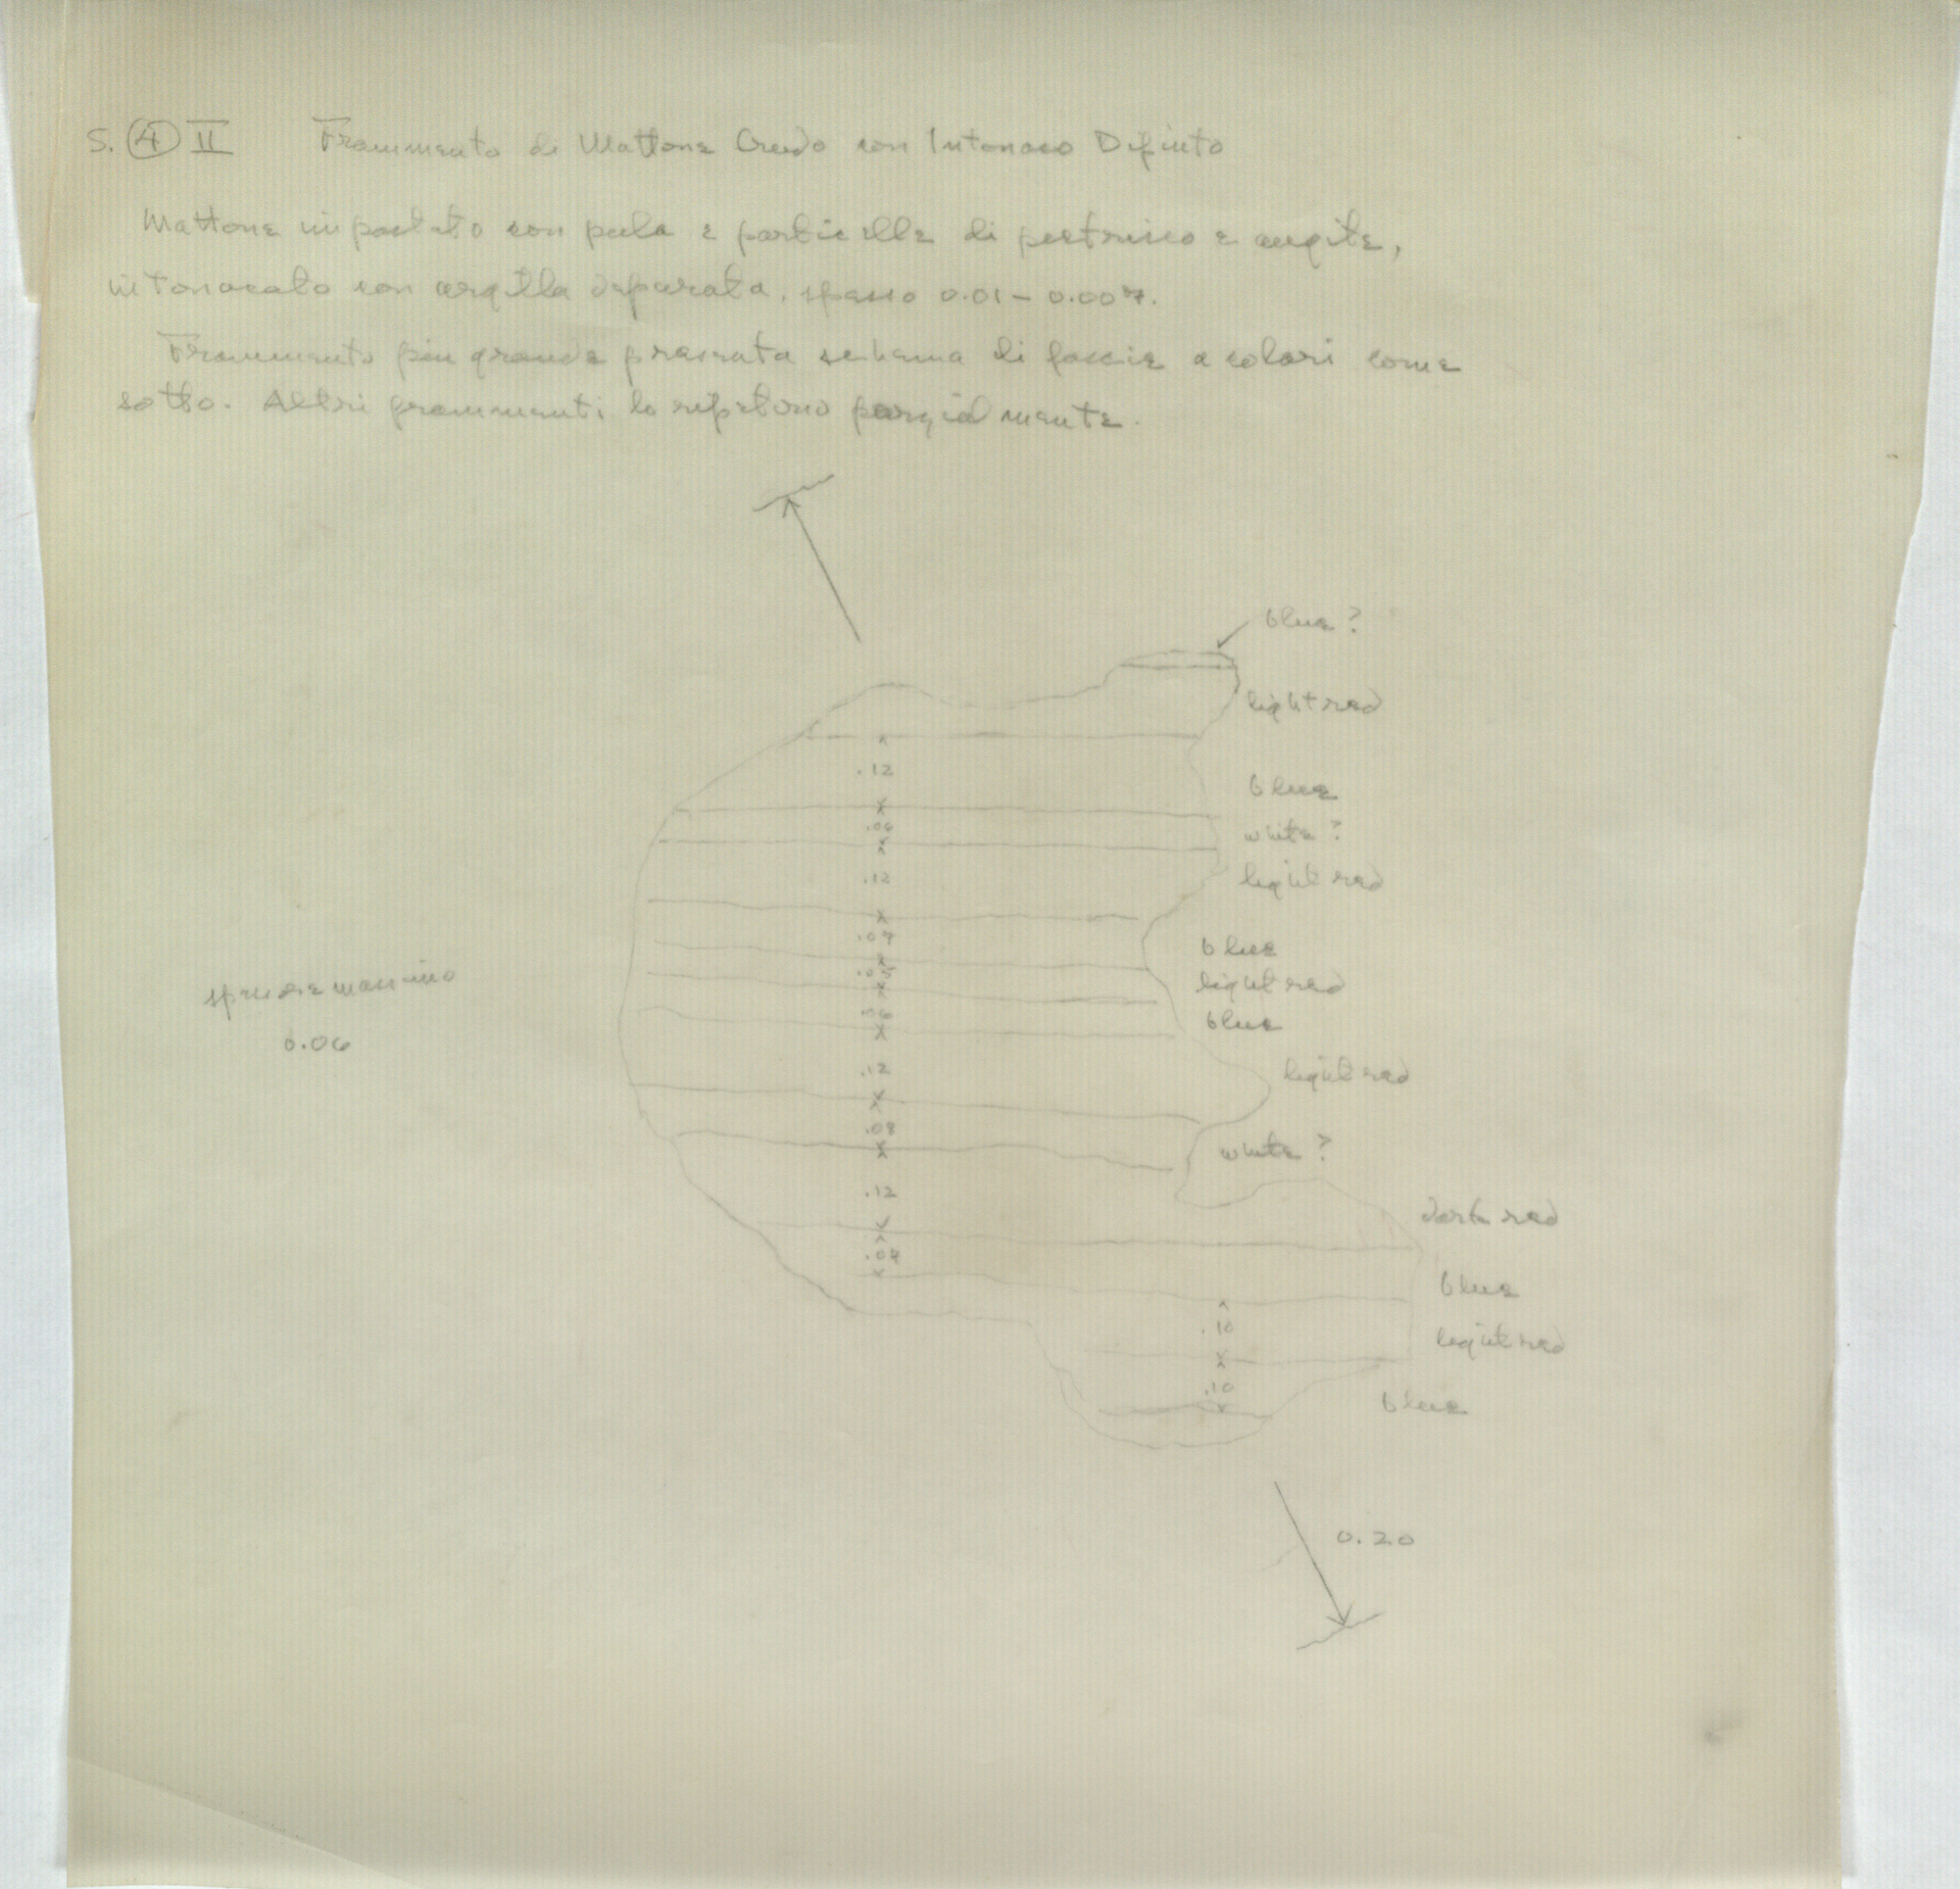 S. 4 II Frammento di Mattone Crudo con Intonaco Dipinto
Mattone impastato con pula e particelle di pietrisco e augite,
intonacato con argilla depurata, spesso 0.01 - 0.007.
Frammento piu grande presenta schema di fascie a colori come
sotto. Altri frammenti lo ripetono parzialmente.
blue ?
light red
.12
blue
.06
white ?
.12
light red
.07
blue
.05
light red
.06
blue
spessore massimo
0.06
.12
light red
.08
white ?
.12
dark red
blue
.10
light red
.10
blue
0.20